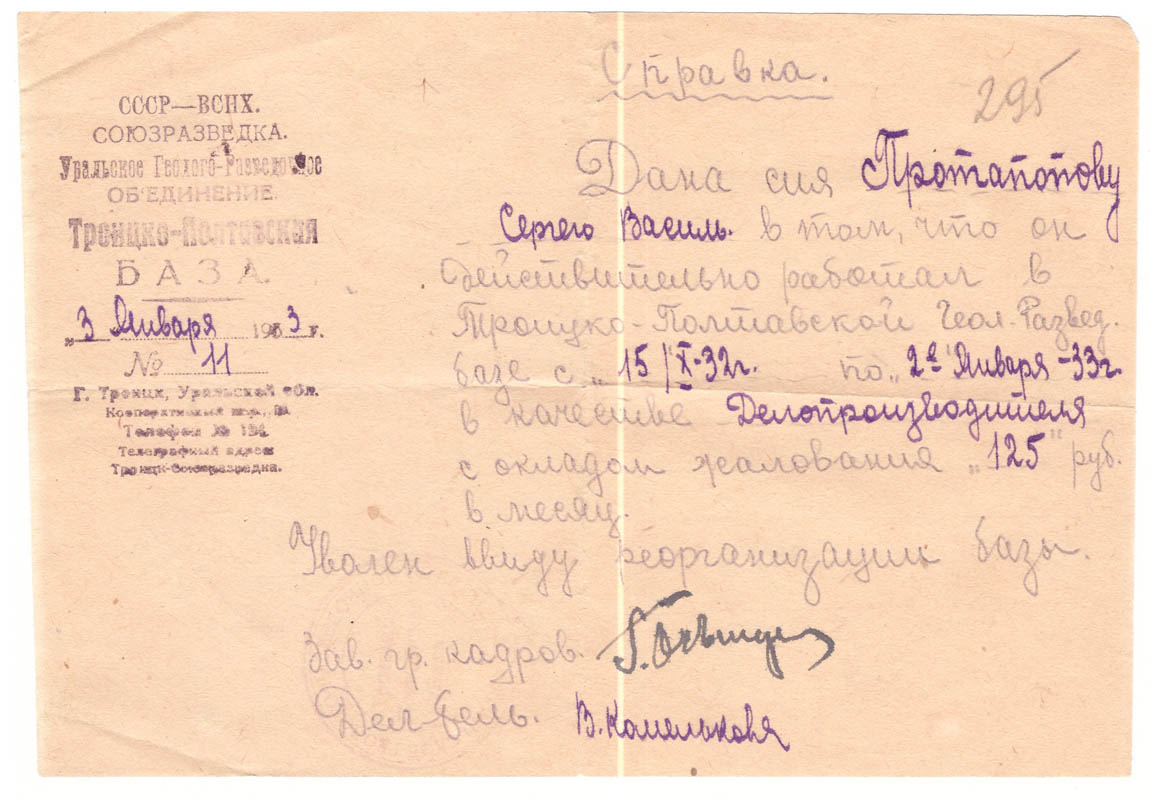 СССР—ВСНХ.
СОЮЗРАЗВЕДКА.
Уральское Геолого-Разведочное
ОБ'ЕДИНЕНИЕ
Троицко-Полтавская
БАЗА.
„3 Января 1933 г.
№ 11
Г. Троицк, Уральской обл.
Кооперативный
Телефон № 194
Телеграфный адрес
Троицк-Союзразведка.
Справка.
295
Дана сия Протапопову
Сергею Василь. в том, что он
действительно работал в
Троицко-Полтавской Геол.-Развед.
базе с „15/X-32г. по „2е Января -33г.
в качестве Делопроизводителя
с окладом жалования „125" руб.
в месяц.
Уволен ввиду реорганизации базы.
Зав. гр. кадров.
Дел-тель. В.